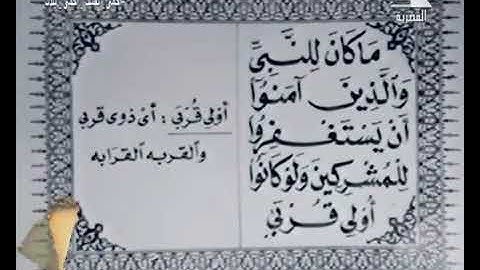 المصرية
مَا كَانَ لِلنَّبِىِّ
وَالَّذِينَ آمَنُوٓا
أَنْ يَسْتَغْفِرُوا
لِلْمُشْرِكِينَ وَلَوْ كَانُوٓا
أُوْلِى قُرْبَى
أُوْلِى قُرْبَى : أى ذوى قربى
والقربه القرابه